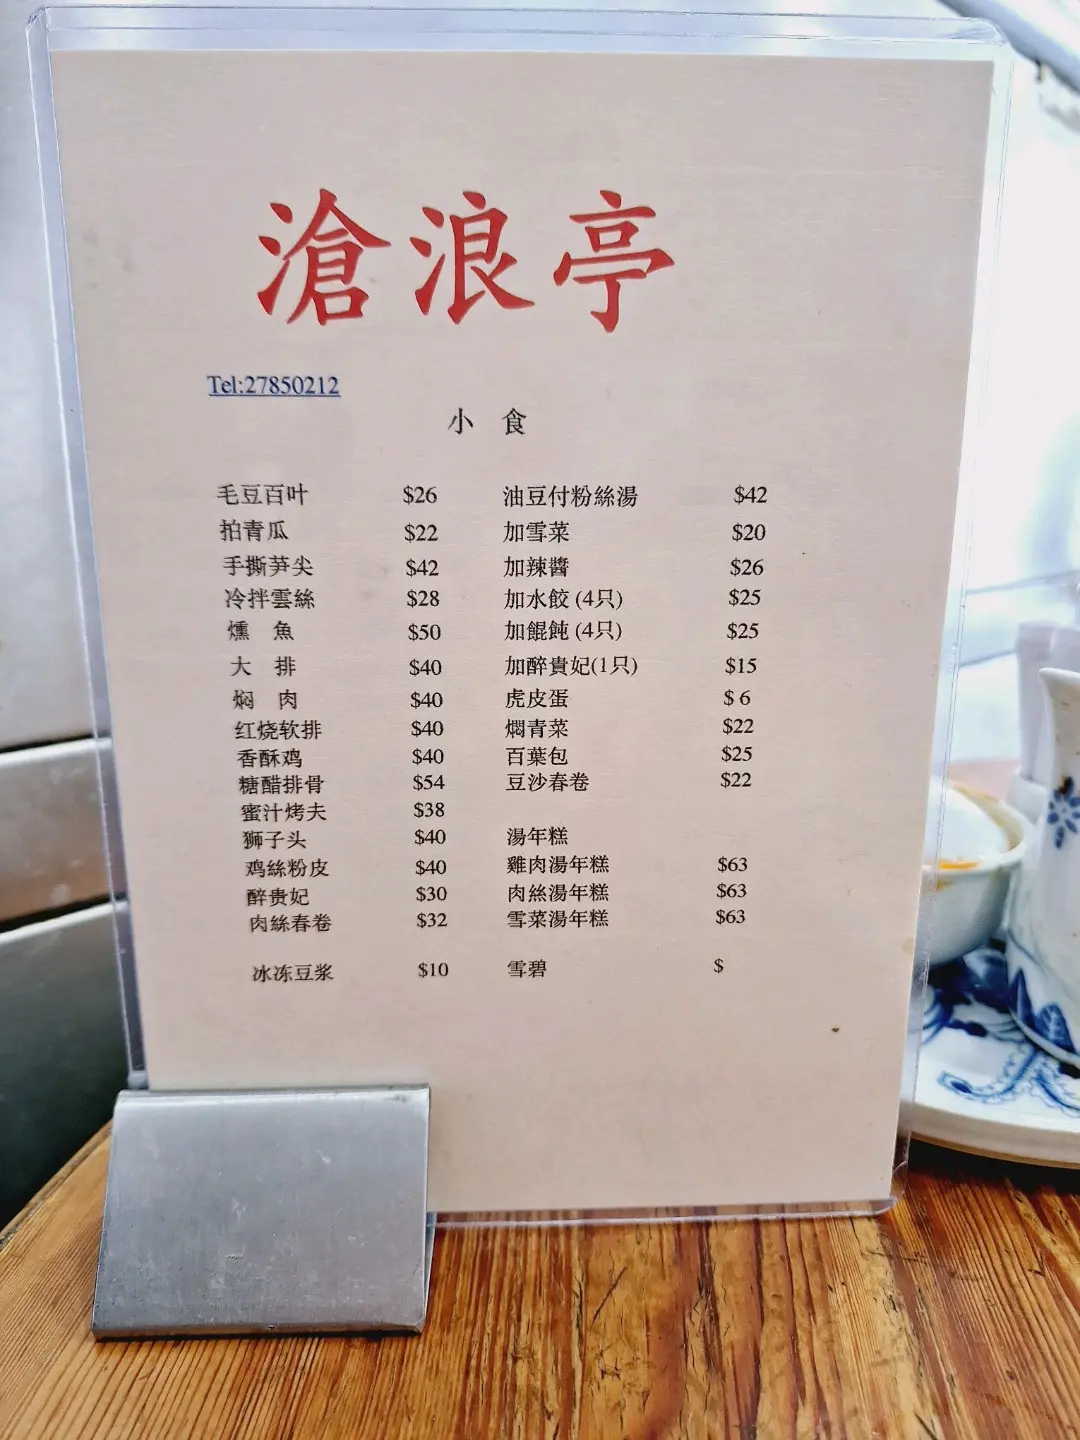 滄浪亭
Tel:27850212
小 食
毛豆百叶 $26 油豆付粉絲湯 $42
拍青瓜 $22 加雪菜 $20
手撕笋尖 $42 加辣醬 $26
冷拌雲絲 $28 加水餃 (4只) $25
燻 魚 $50 加餛飩 (4只) $25
大 排 $40 加醉貴妃(1只) $15
焖 肉 $40 虎皮蛋 $ 6
红烧软排 $40 燜青菜 $22
香酥鸡 $40 百葉包 $25
糖醋排骨 $54 豆沙春卷 $22
蜜汁烤夫 $38
狮子头 $40 湯年糕
鸡絲粉皮 $40 雞肉湯年糕 $63
醉贵妃 $30 肉絲湯年糕 $63
肉絲春卷 $32 雪菜湯年糕 $63
冰冻豆浆 $10 雪碧 $